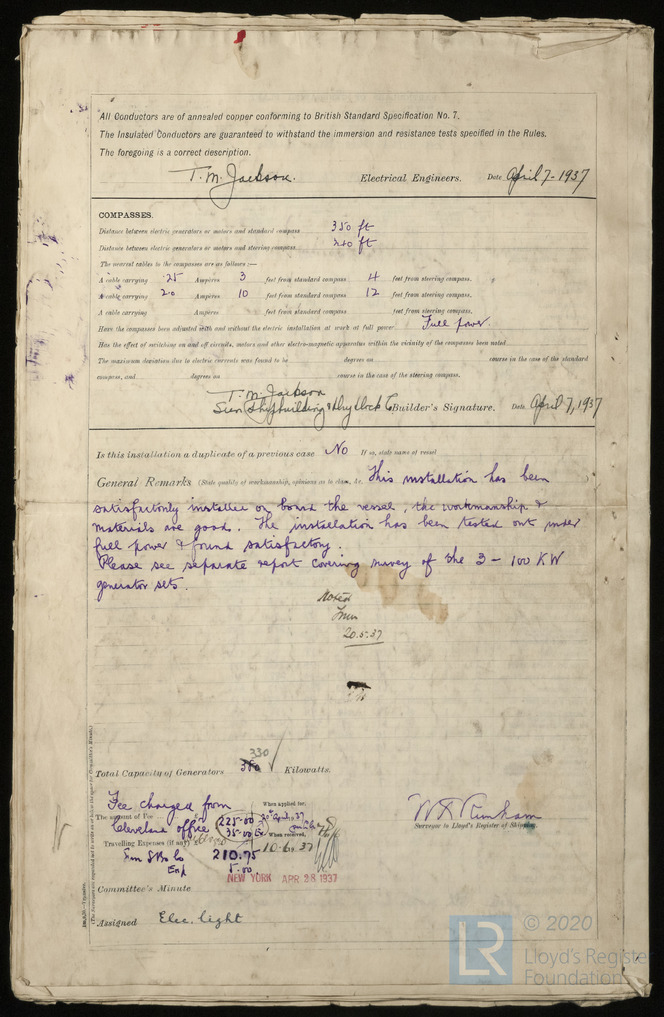 All Conductors are of annealed copper conforming to British Standard Specification No. 7.
The Insulated Conductors are guaranteed to withstand the immersion and resistance tests specified in the Rules.
The foregoing is a correct description.
T. M. Jackson. Electrical Engineers. Date April 7-1937
COMPASSES.
Distance between electric generators or motors and standard compass 350 ft
Distance between electric generators or motors and steering compass 240 ft
The nearest cables to the compasses are as follows:—
A cable carrying .25 Ampères 3 feet from standard compass 4 feet from steering compass.
A cable carrying 20 Ampères 10 feet from standard compass 12 feet from steering compass.
A cable carrying Ampères feet from standard compass feet from steering compass.
Have the compasses been adjusted with and without the electric installation at work at full power Full power
Has the effect of switching on and off circuits, motors and other electro-magnetic apparatus within the vicinity of the compasses been noted
The maximum deviation due to electric currents was found to be degrees on course in the case of the standard
compass, and degrees on course in the case of the steering compass.
T. M. Jackson
Sun Shipbuilding & Dry Dock Co Builder's Signature. Date April 7, 1937
Is this installation a duplicate of a previous case No If so, state name of vessel
General Remarks (State quality of workmanship, opinions as to class, &c. This installation has been
satisfactorily installed on board the vessel, the workmanship &
materials are good. The installation has been tested out under
full power & found satisfactory.
Please see separate report covering survey of the 3 - 100 KW
generator sets.
Noted
20.5.37
330
Total Capacity of Generators Kilowatts.
Fee charged from
The amount of Fee
Cleveland office 225.00
35.00
When applied for,
When received,
10.6.37
Travelling Expenses (if any)
210.75
Exp 5.00
Surveyor to Lloyd's Register of Shipping.
NEW YORK APR 28 1937
Committee's Minute
Assigned Elec. light
LR © 2020
Lloyd's Register
Foundation